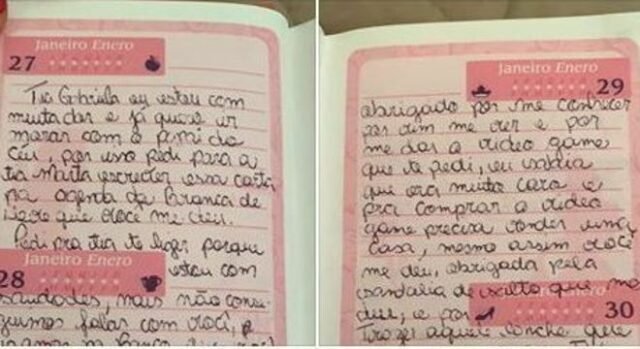 Janeiro Enero
27
Tia Gabriela eu estou com
muita dor e já quero ir
morar com o do
céu, por isso pedi para a
tia Marta escrever essa carta
na agenda da Branca de
que você me deu.
Pedi pra tia te ligar porque
Janeiro Enero
28
estou com
saudades, mais não conse-
guimos falar com você, e
Janeiro Enero
29
obrigado por me conhecer
por vim me ver e por
me dar o video game
que te pedi, eu sabia
que era muito caro e
pra comprar o video
game precisa vender uma
casa, mesmo assim você
me deu, obrigada pela
sandalia de salto que me
Janeiro Enero
deu, e por
30
aquela concha que